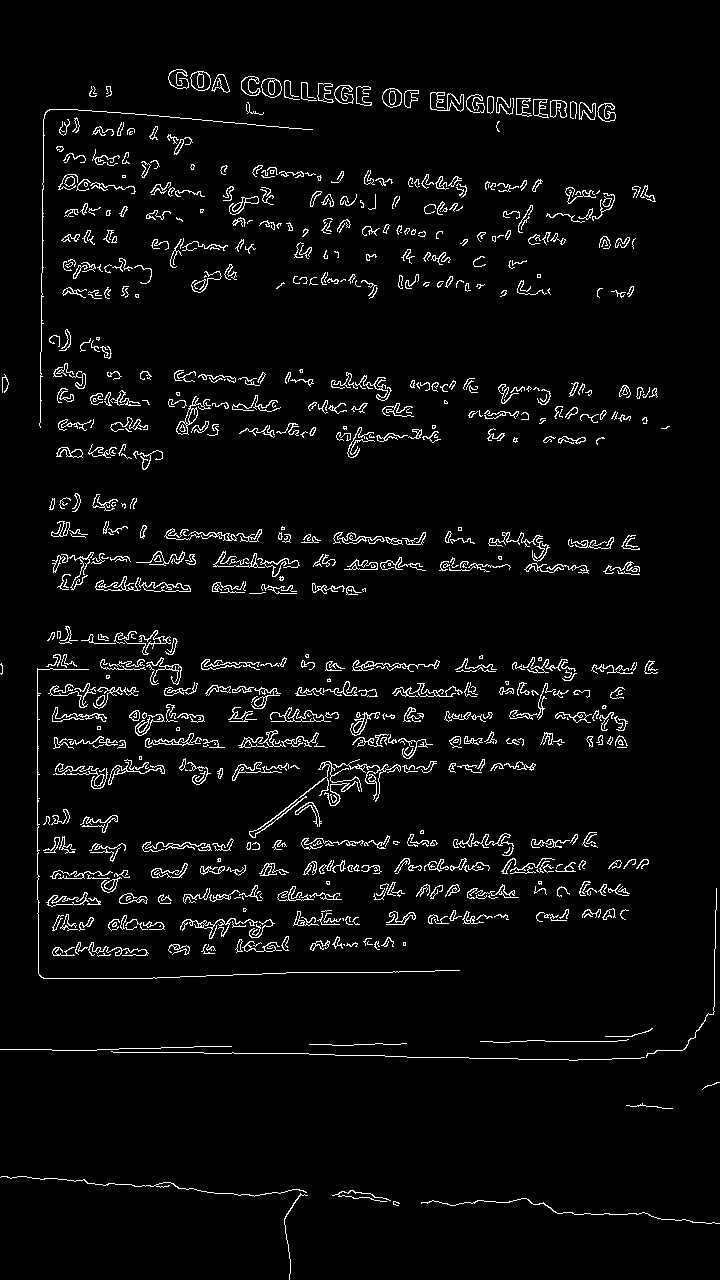 GOA COLLEGE OF ENGINEERING
8) nslookup
nslookup is a command line utility used to query the
Domain Name System (DNS) to obtain information
about domain names, IP address, and other DNS
related information. It is available on
operating systems, including Windows, Linux and
9) dig
dig is a command line utility used to query the DNS
to obtain information about domain names, IP address,
and other DNS related information. It is
nslookup
10) host
The host command is a command line utility used to
perform DNS lookups to resolve domain names into
IP addresses and vice versa.
11) iwconfig
The iwconfig command is a command line utility used to
configure and manage wireless network interfaces
Linux systems It allows you to view and modify
various wireless network settings such as the SSID
encryption key, power management and more
12) arp
The arp command is a command-line utility used to
manage and view the Address Resolution Protocol ARP
cache on a network device The ARP cache is a table
that stores mappings between IP address and MAC
addresses on a local network.